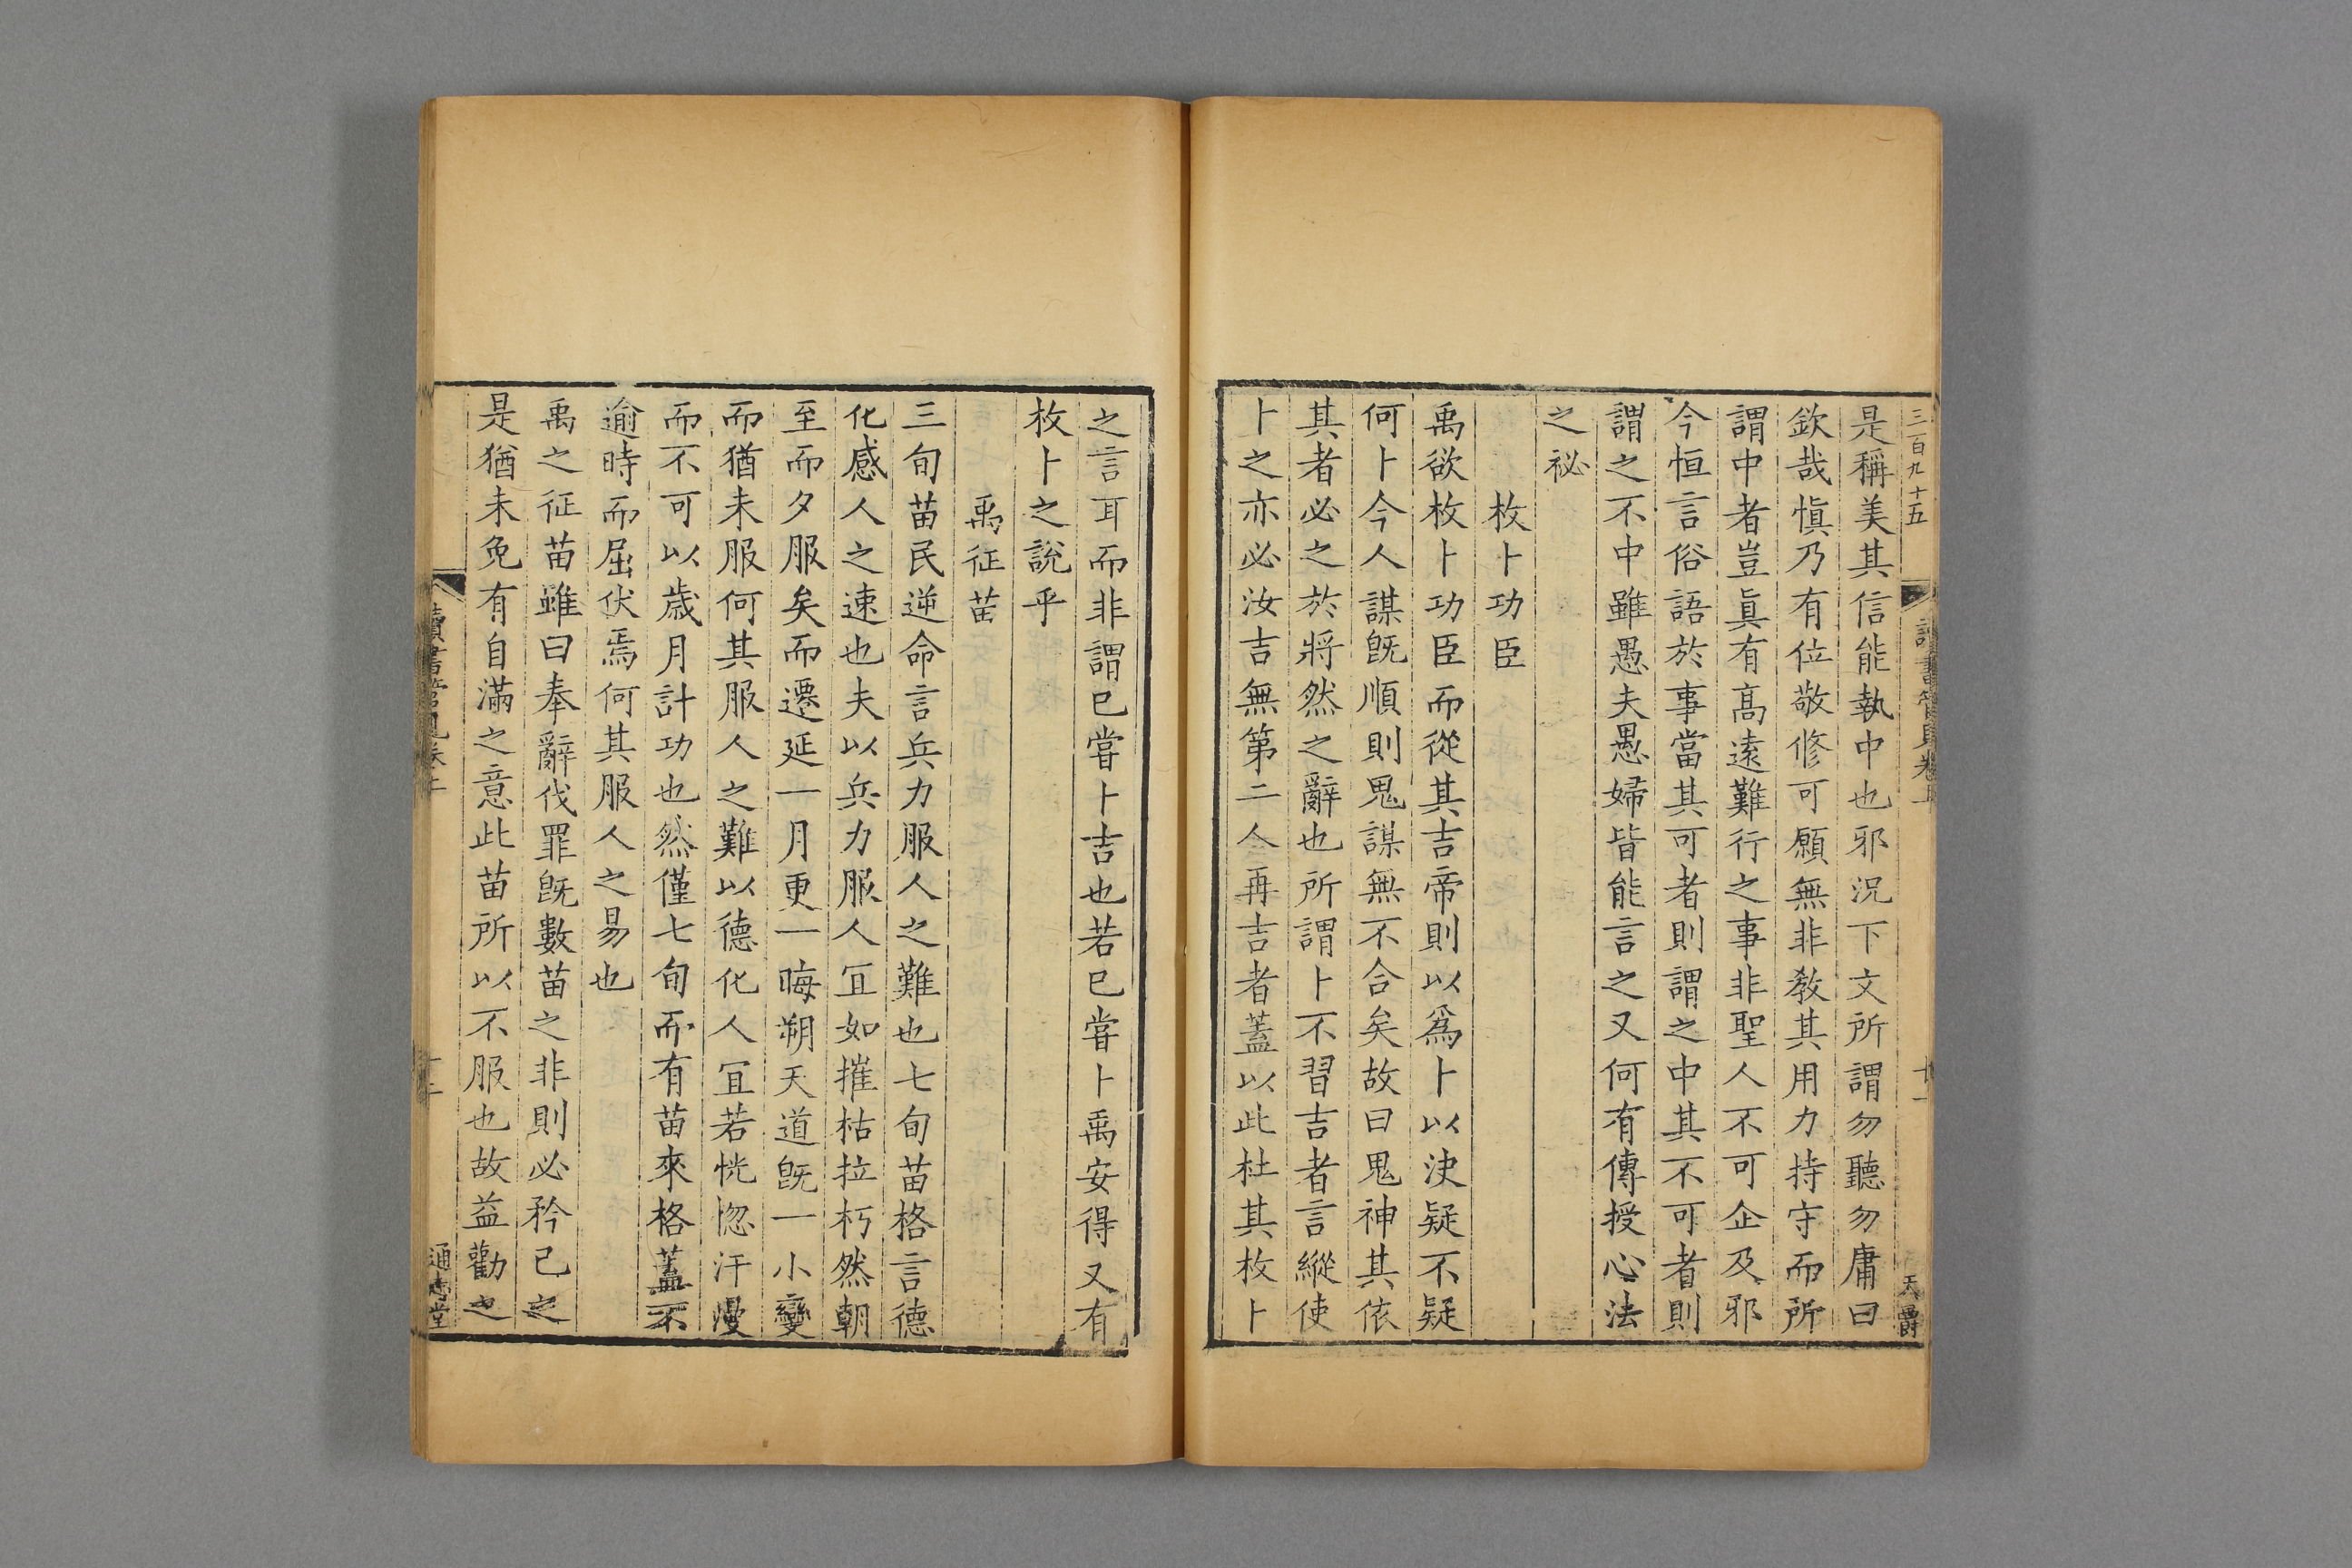 三百九十五
是稱美其信能執中也邪況下文所謂勿聽勿庸曰
欽哉慎乃有位敬修可願無非敎其用力持守而所
謂中者豈眞有高遠難行之事非聖人不可企及邪
今恒言俗語於事當其可者則謂之中其不可者則
謂之不中雖愚夫愚婦皆能言之又何有傳授心法
之祕
枚卜功臣
禹欲枚卜功臣而從其吉帝則以爲卜以決疑不疑
何卜今人謀旣順則鬼謀無不合矣故曰鬼神其依
其者必之於將然之辭也所謂卜不習吉者言縱使
卜之亦必汝吉無第二人再吉者蓋以此杜其枚卜
之言耳而非謂已嘗卜吉也若已嘗卜禹安得又有
枚卜之說乎
禹征苗
三旬苗民逆命言兵力服人之難也七旬苗格言德
化感人之速也夫以兵力服人宜如摧枯拉朽然朝
至而夕服矣而遷延一月更一晦朔天道旣一小變
而猶未服何其服人之難以德化人宜若恍惚汗漫
而不可以歲月計功也然僅七旬而有苗來格蓋不
逾時而屈伏焉何其服人之易也
禹之征苗雖曰奉辭伐罪旣數苗之非則必矜已之
是猶未免有自滿之意此苗所以不服也故益勸之
讀書管見卷上
通志堂